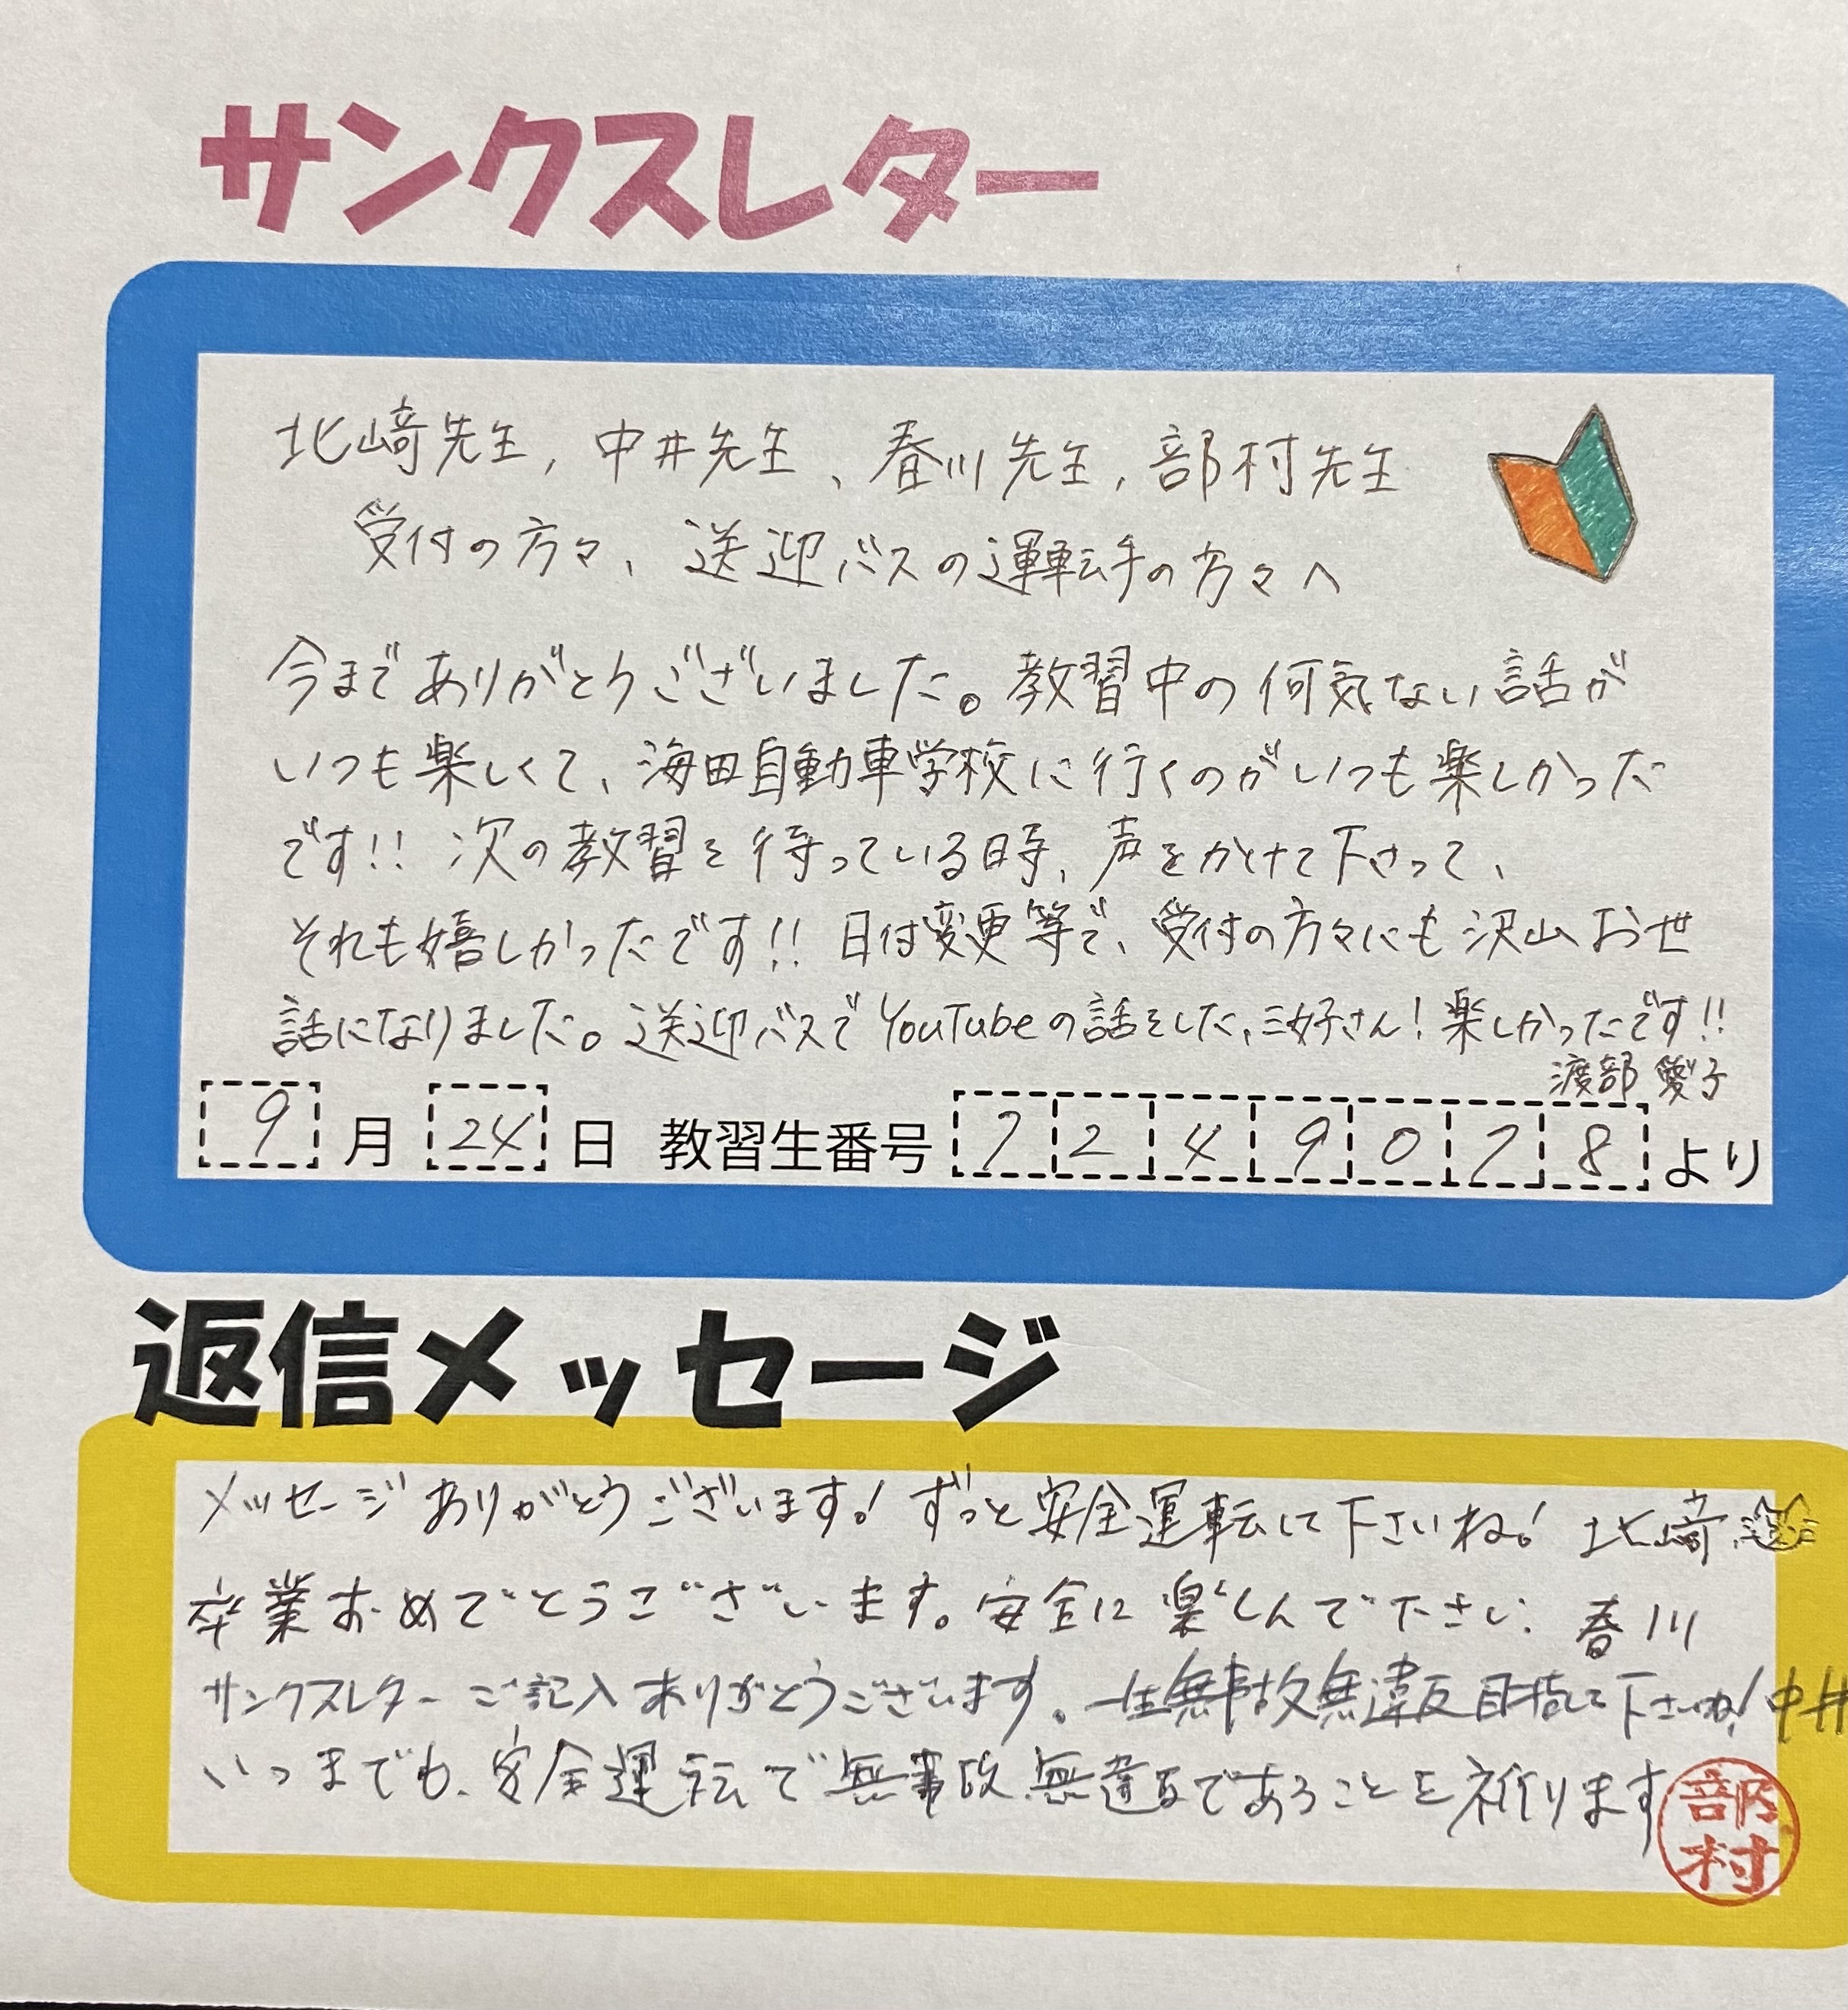 サンクスレター
北崎先生, 中井先生、春川先生, 部村先生
受付の方々、送迎バスの運転手の方々へ
今までありがとうございました。教習中の何気ない話が
いつも楽しくて、海田自動車学校に行くのがいつも楽しかった
です!! 次の教習を待っている時、声をかけて下さって、
それも嬉しかったです!! 日付変更等で、受付の方々にも沢山お世
話になりました。送迎バスでYouTubeの話をした、三好さん! 楽しかったです!!
渡部 愛子
9月24日 教習生番号 7249078 より
返信メッセージ
メッセージありがとうございます! ずっと安全運転して下さいね! 北崎
卒業おめでとうございます。安全に楽しんで下さい. 春川
サンクスレターご記入ありがとうございます。一生無事故無違反目指して下さいね! 中井
いつまでも、安全運転で無事故、無違反であることを祈ります
部村